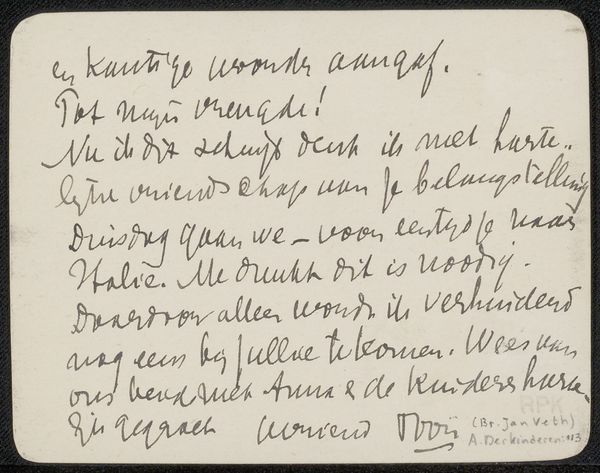 en kantige woorden aangaf.
Tot mijn vreugde!
Nu ik dit schrijf denk ik met harte-
lijke vriendschap aan je belangstelling
Dinsdag gaan we – voor een tijdje naar
Italië. Me dunkt dit is noodig.
Daardoor alleen wordt ik verhinderd
nog eens bij jullie te komen. Wees van
ons beid met Anna & de kinderen harte-
lijk gegroet vriend
RPK
(Br. Jan Veth)
A. Derkinderen: 113